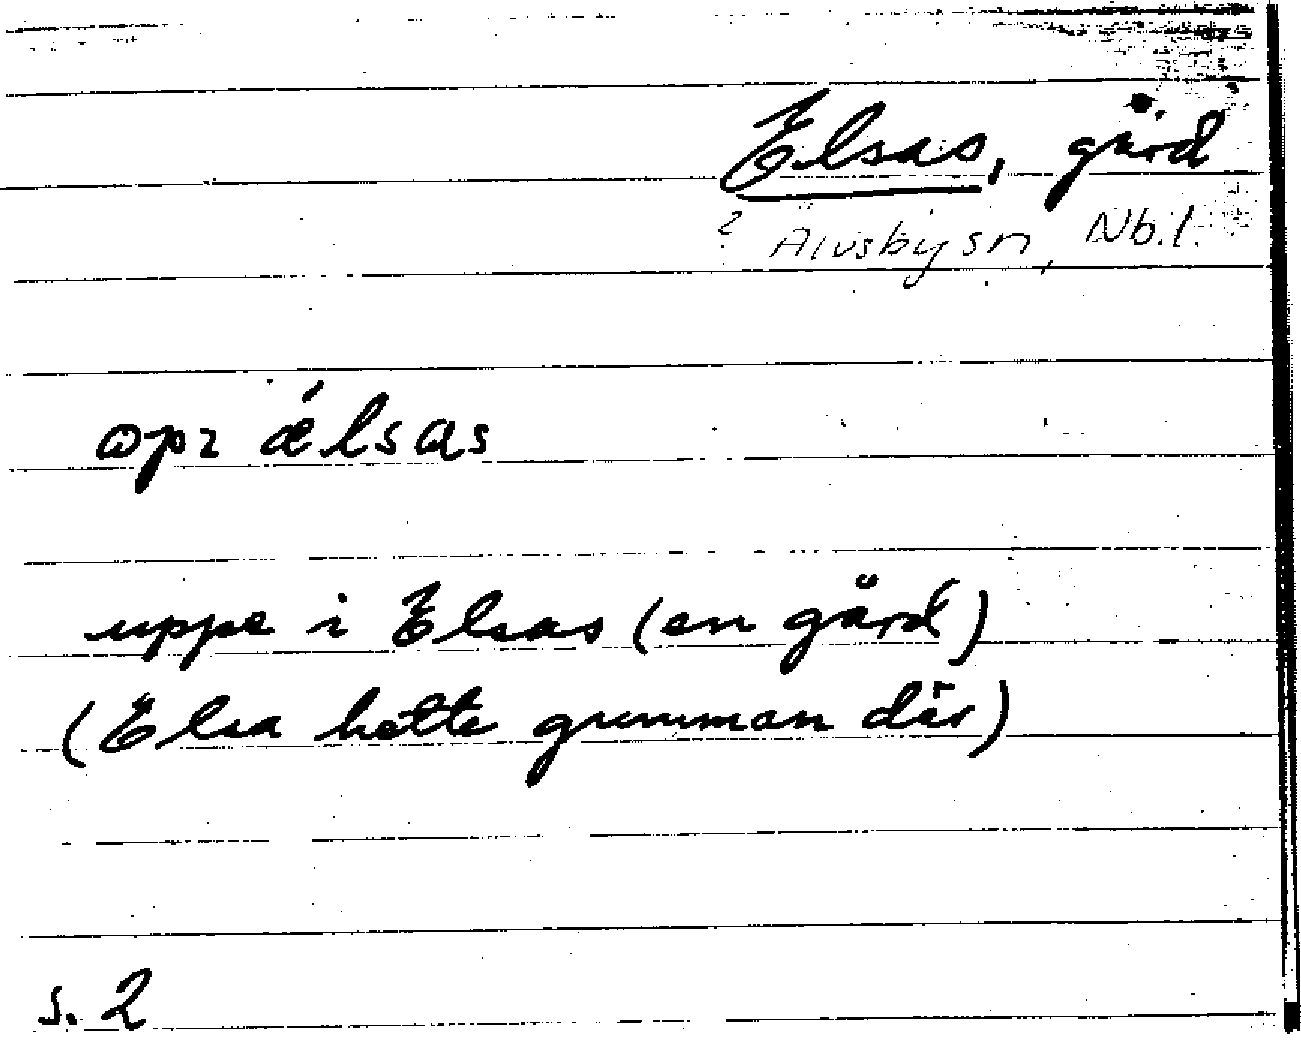 Elsas, gård
? Älvsby sn, Nb.l.
ɷpɩ ǽlsɑs
uppe i Elsas (en gård)
(Elsa hette gumman där)
s. 2